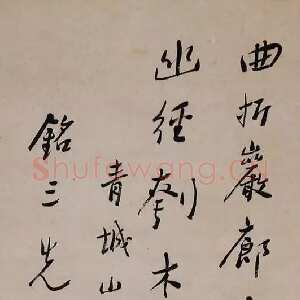 曲折巖廊
幽徑刳木
青城山
銘三先
Shufawang.cn